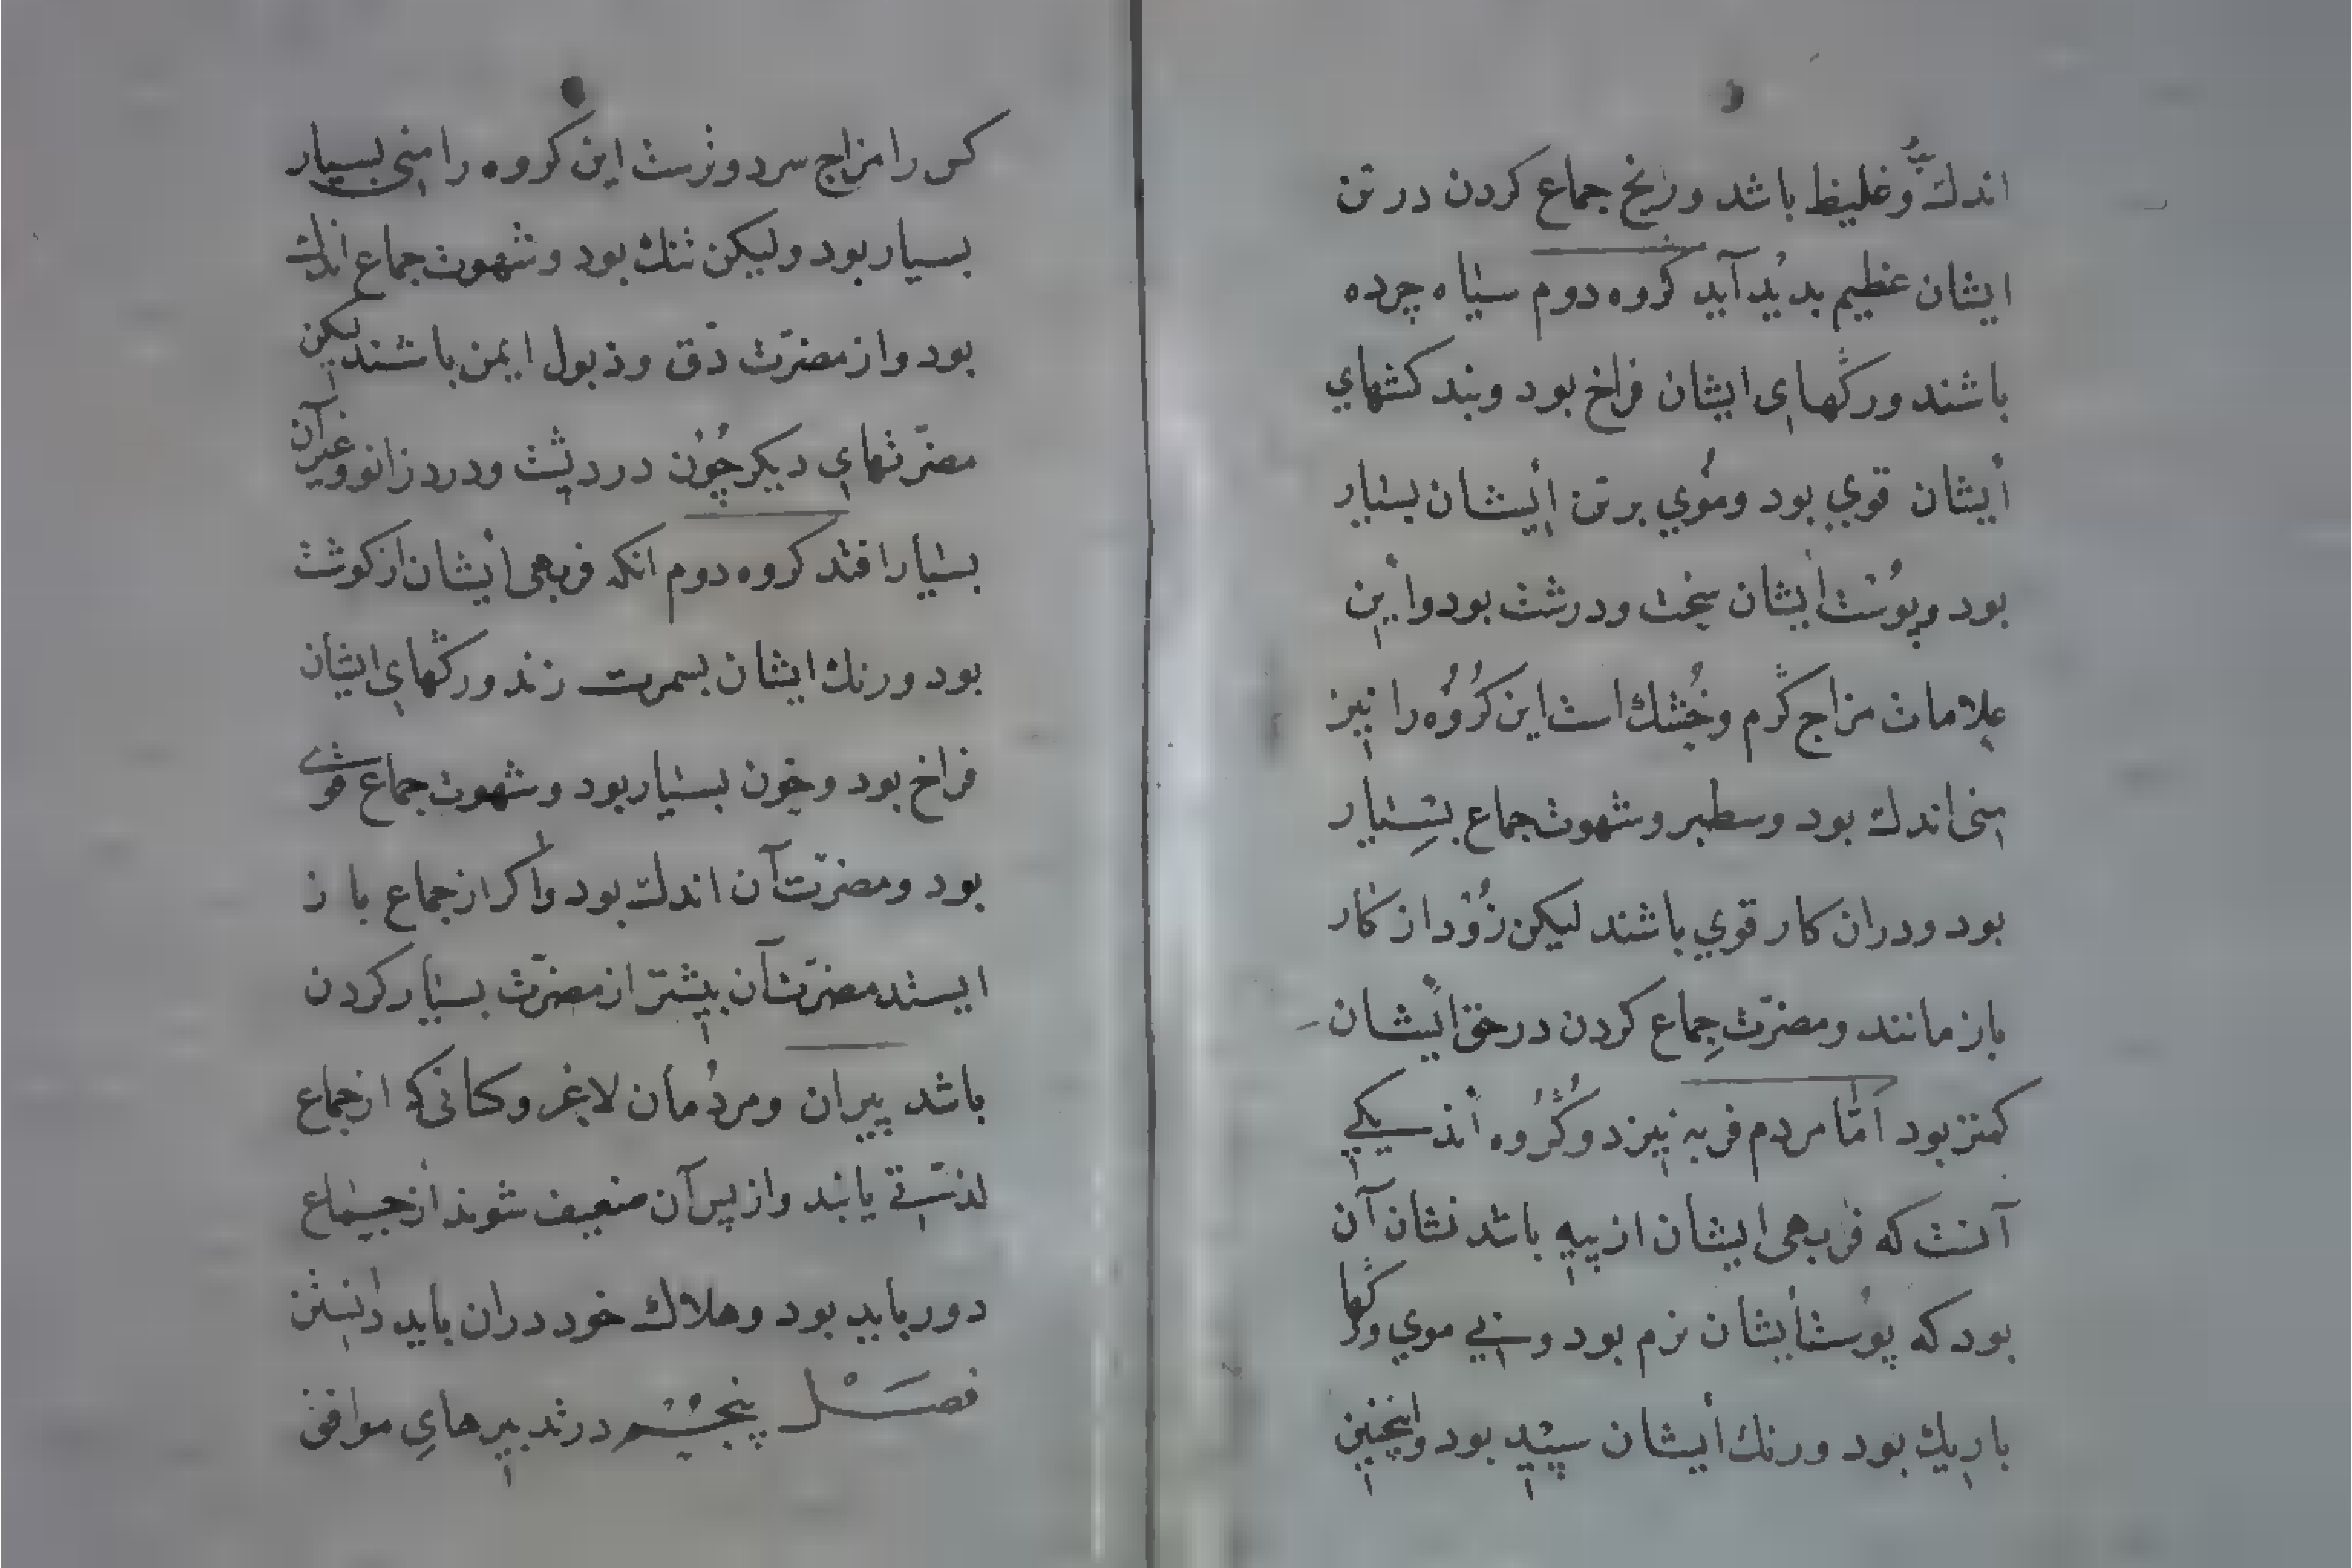 اندك و غلیظ باشد و رنج جماع كردن در تن
ایشان عظیم بدید آید كروه دوم سیاه چرده
باشند و ركهای ایشان فراخ بود و بند كشهای
ایشان قوي بود و موي بر تن ایشان بسیار
بود و پوست ایشان سخت و درشت بود و این
علامات مزاج كرم و خشك است این كروه را نیز
منی اندك بود و سطبر و شهوت جماع بسیار
بود و دران كار قوي باشند لیكن زود از كار
باز مانند و مضرّت جماع كردن در حق ایشان
كمتر بود امّا مردم فربه نیز دو كروه اند یكي
آنست كه فربهی ایشان از پیه باشد نشان آن
بود كه پوست ایشان نرم بود و بي موي و ركها
باریك بود و رنك ایشان سپید بود و اینچنین
كس را مزاج سرد و ترست این كروه را منی بسیار
بسیار بود و لیكن تنك بود و شهوت جماع اندك
بود و از مضرّت دق و ذبول ایمن باشند لیكن
مضرّتهاي دیكر چون درد پشت و درد زانو و غیر آن
بسیار افتد كروه دوم انكه فربهی ایشان از كوشت
بود و رنك ایشان بسمرت زند و ركهاي ایشان
فراخ بود و خون بسیار بود و شهوت جماع قوي
بود و مضرّت آن اندك بود و اكر از جماع باز
ایستد مضرّت آن بیشتر از مضرّت بسیار كردن
باشد پیران و مردمان لاغر و كسانی كه از جماع
لذّتي یابند و از پس آن ضعیف شوند از جماع
دور باید بود و هلاك خود دران باید دانستن
فصل پنجم در تدبیرهاي موافق